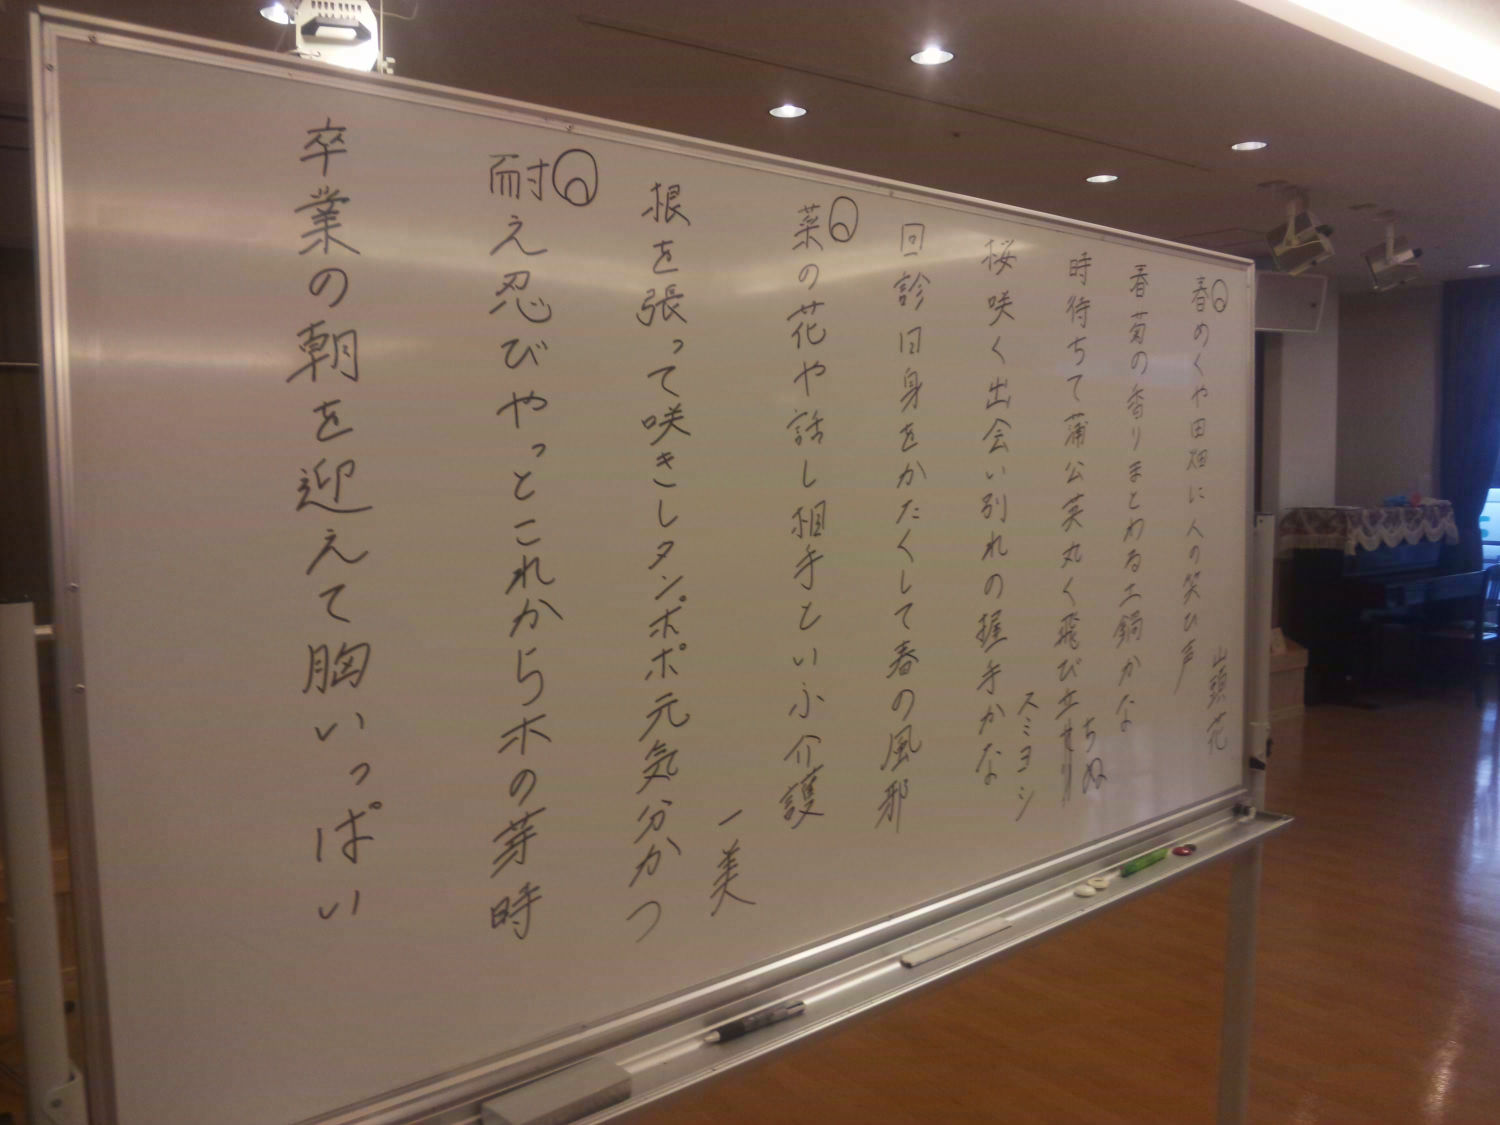 春めくや田畑に人の笑ひ声
山頭花
春菊の香りまとわる土鍋かな
時待ちて蒲公英丸く飛び立せり
ちぬ
桜咲く出会い別れの握手かな
スミヨシ
回診日身をかたくして春の風邪
菜の花や話し相手といふ介護
一美
根を張って咲きしタンポポ元気分かつ
耐え忍びやっとこれから木の芽時
卒業の朝を迎えて胸いっぱい